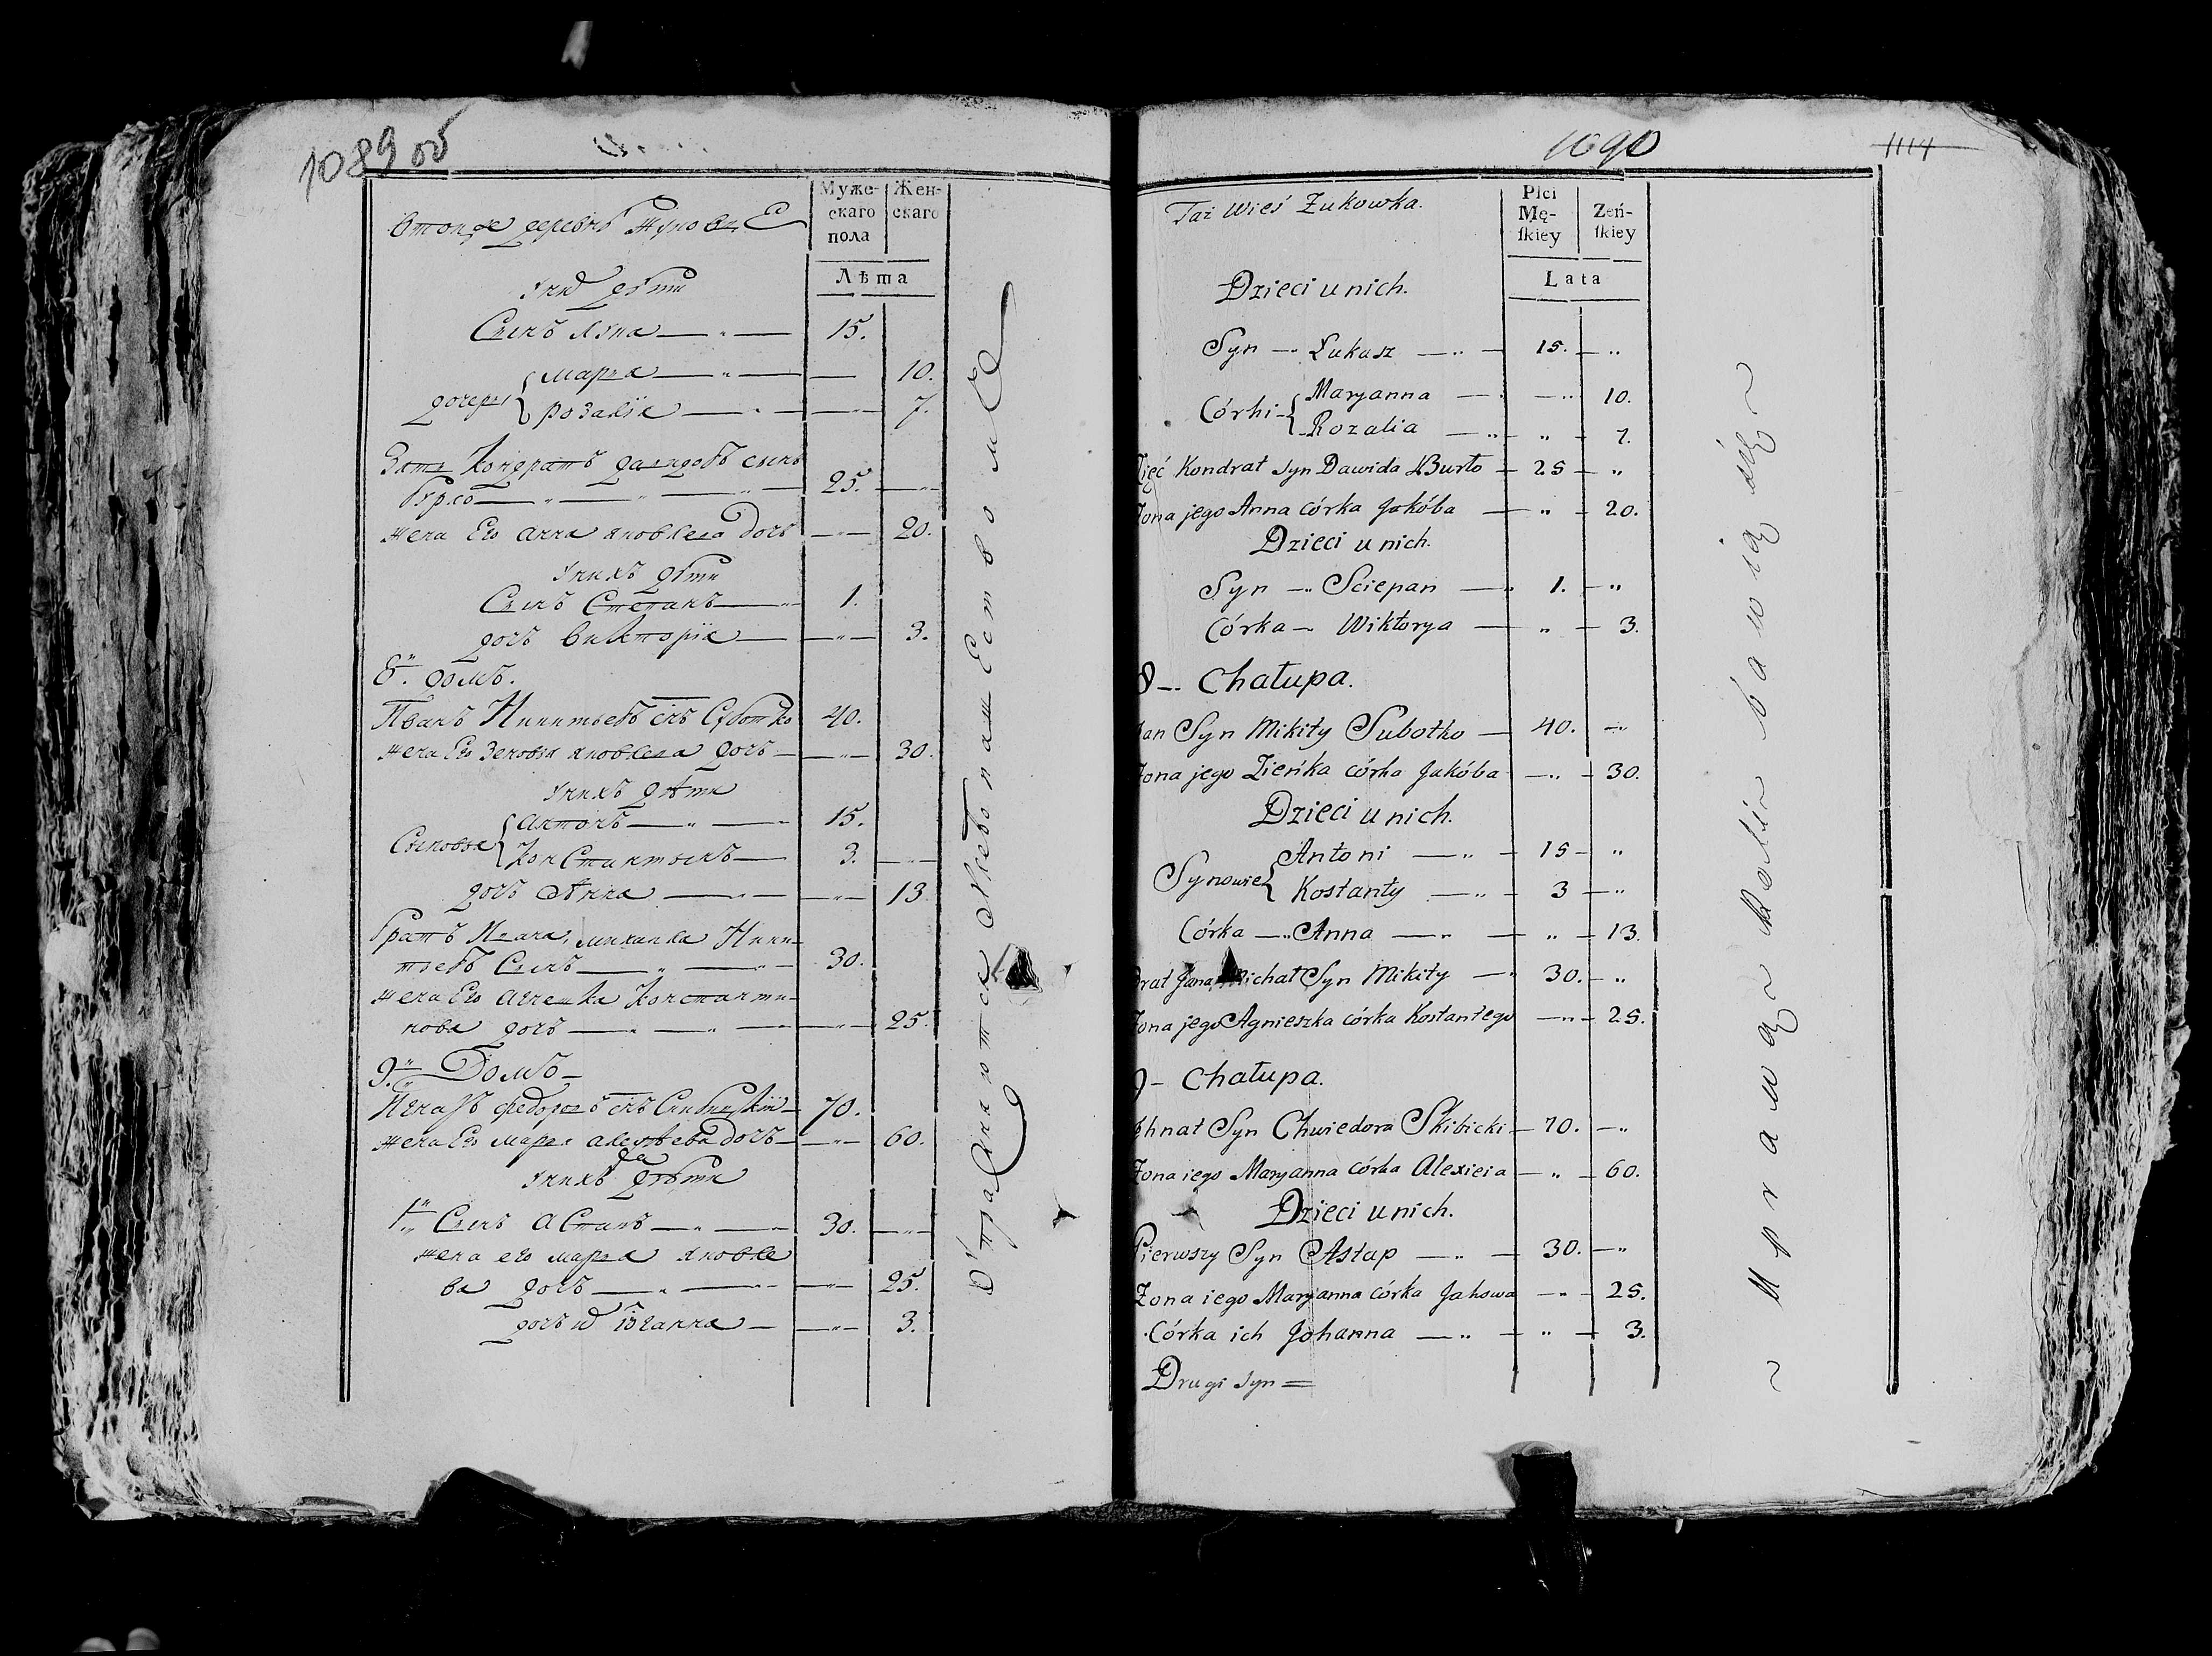 1089 об
Мужескаго пола
Женскаго
Лѣта
Втойже деревнѣ Жуковке
У них дѣти
Сынъ Лука 15.
дочери Марья 10.
Розалія 7.
Зять Кондратъ Давидовъ сынъ
Бурло 25.
жена Его Анна Яковлева Дочь 20.
У нихъ дѣти
Сынъ Степанъ 1.
дочь Викторія 3.
8й домъ.
Иванъ Никитьевъ снъ Суботко 40.
жена Его Зеновья Яковлева дочь 30.
У нихъ дѣти
Сыновья Антонъ 15.
Константынъ 3.
дочь Анна 13.
Братъ Ивана, михаила Ники-
тьевъ Сынъ 30.
жена Его Агнешка Константи-
нова дочь 25.
9й Домъ
Игнатъ федоровъ снъ Скибицкій 70.
жена Его марья алексѣева Дочь 60.
У нихъ дѣти
1й Сынъ Астапъ 30.
жена его марья Яковле
ва дочь 25.
дочь их Іоганна 3.
Упражняются Хлебопашеством
1090
1114
Taż Wieś Żukowka.
Płci Mę-
ſkiey
Żeń-
ſkiey
Lata
Dzieci u nich.
Syn Łukasz 15.
Córki Maryanna 10.
Rozalia 7.
Zięć Kondrat syn Dawida Burło 25
Żona jego Anna córka Jakóba 20.
Dzieci u nich.
Syn Sciepan 1.
Córka Wiktorya 3.
8 Chałupa.
Jan Syn Mikity Subotko 40.
Żona jego Zieńka córka Jakóba 30.
Dzieci u nich.
Synowie Antoni 15
Kostanty 3
Córka Anna 13.
Brat Jana Michał Syn Mikity 30.
Żona jego Agnieszka córka Kostantego 25.
9 Chałupa.
Ihnat Syn Chwiedora Skibicki 70.
Żona iego Maryanna córka Alexieia 60.
Dzieci u nich.
Pierwszy Syn Astap 30.
Żona iego Maryanna córka Jakowa 25.
Córka ich Johanna 3.
Drugi syn
Uprawą Roli bawią się